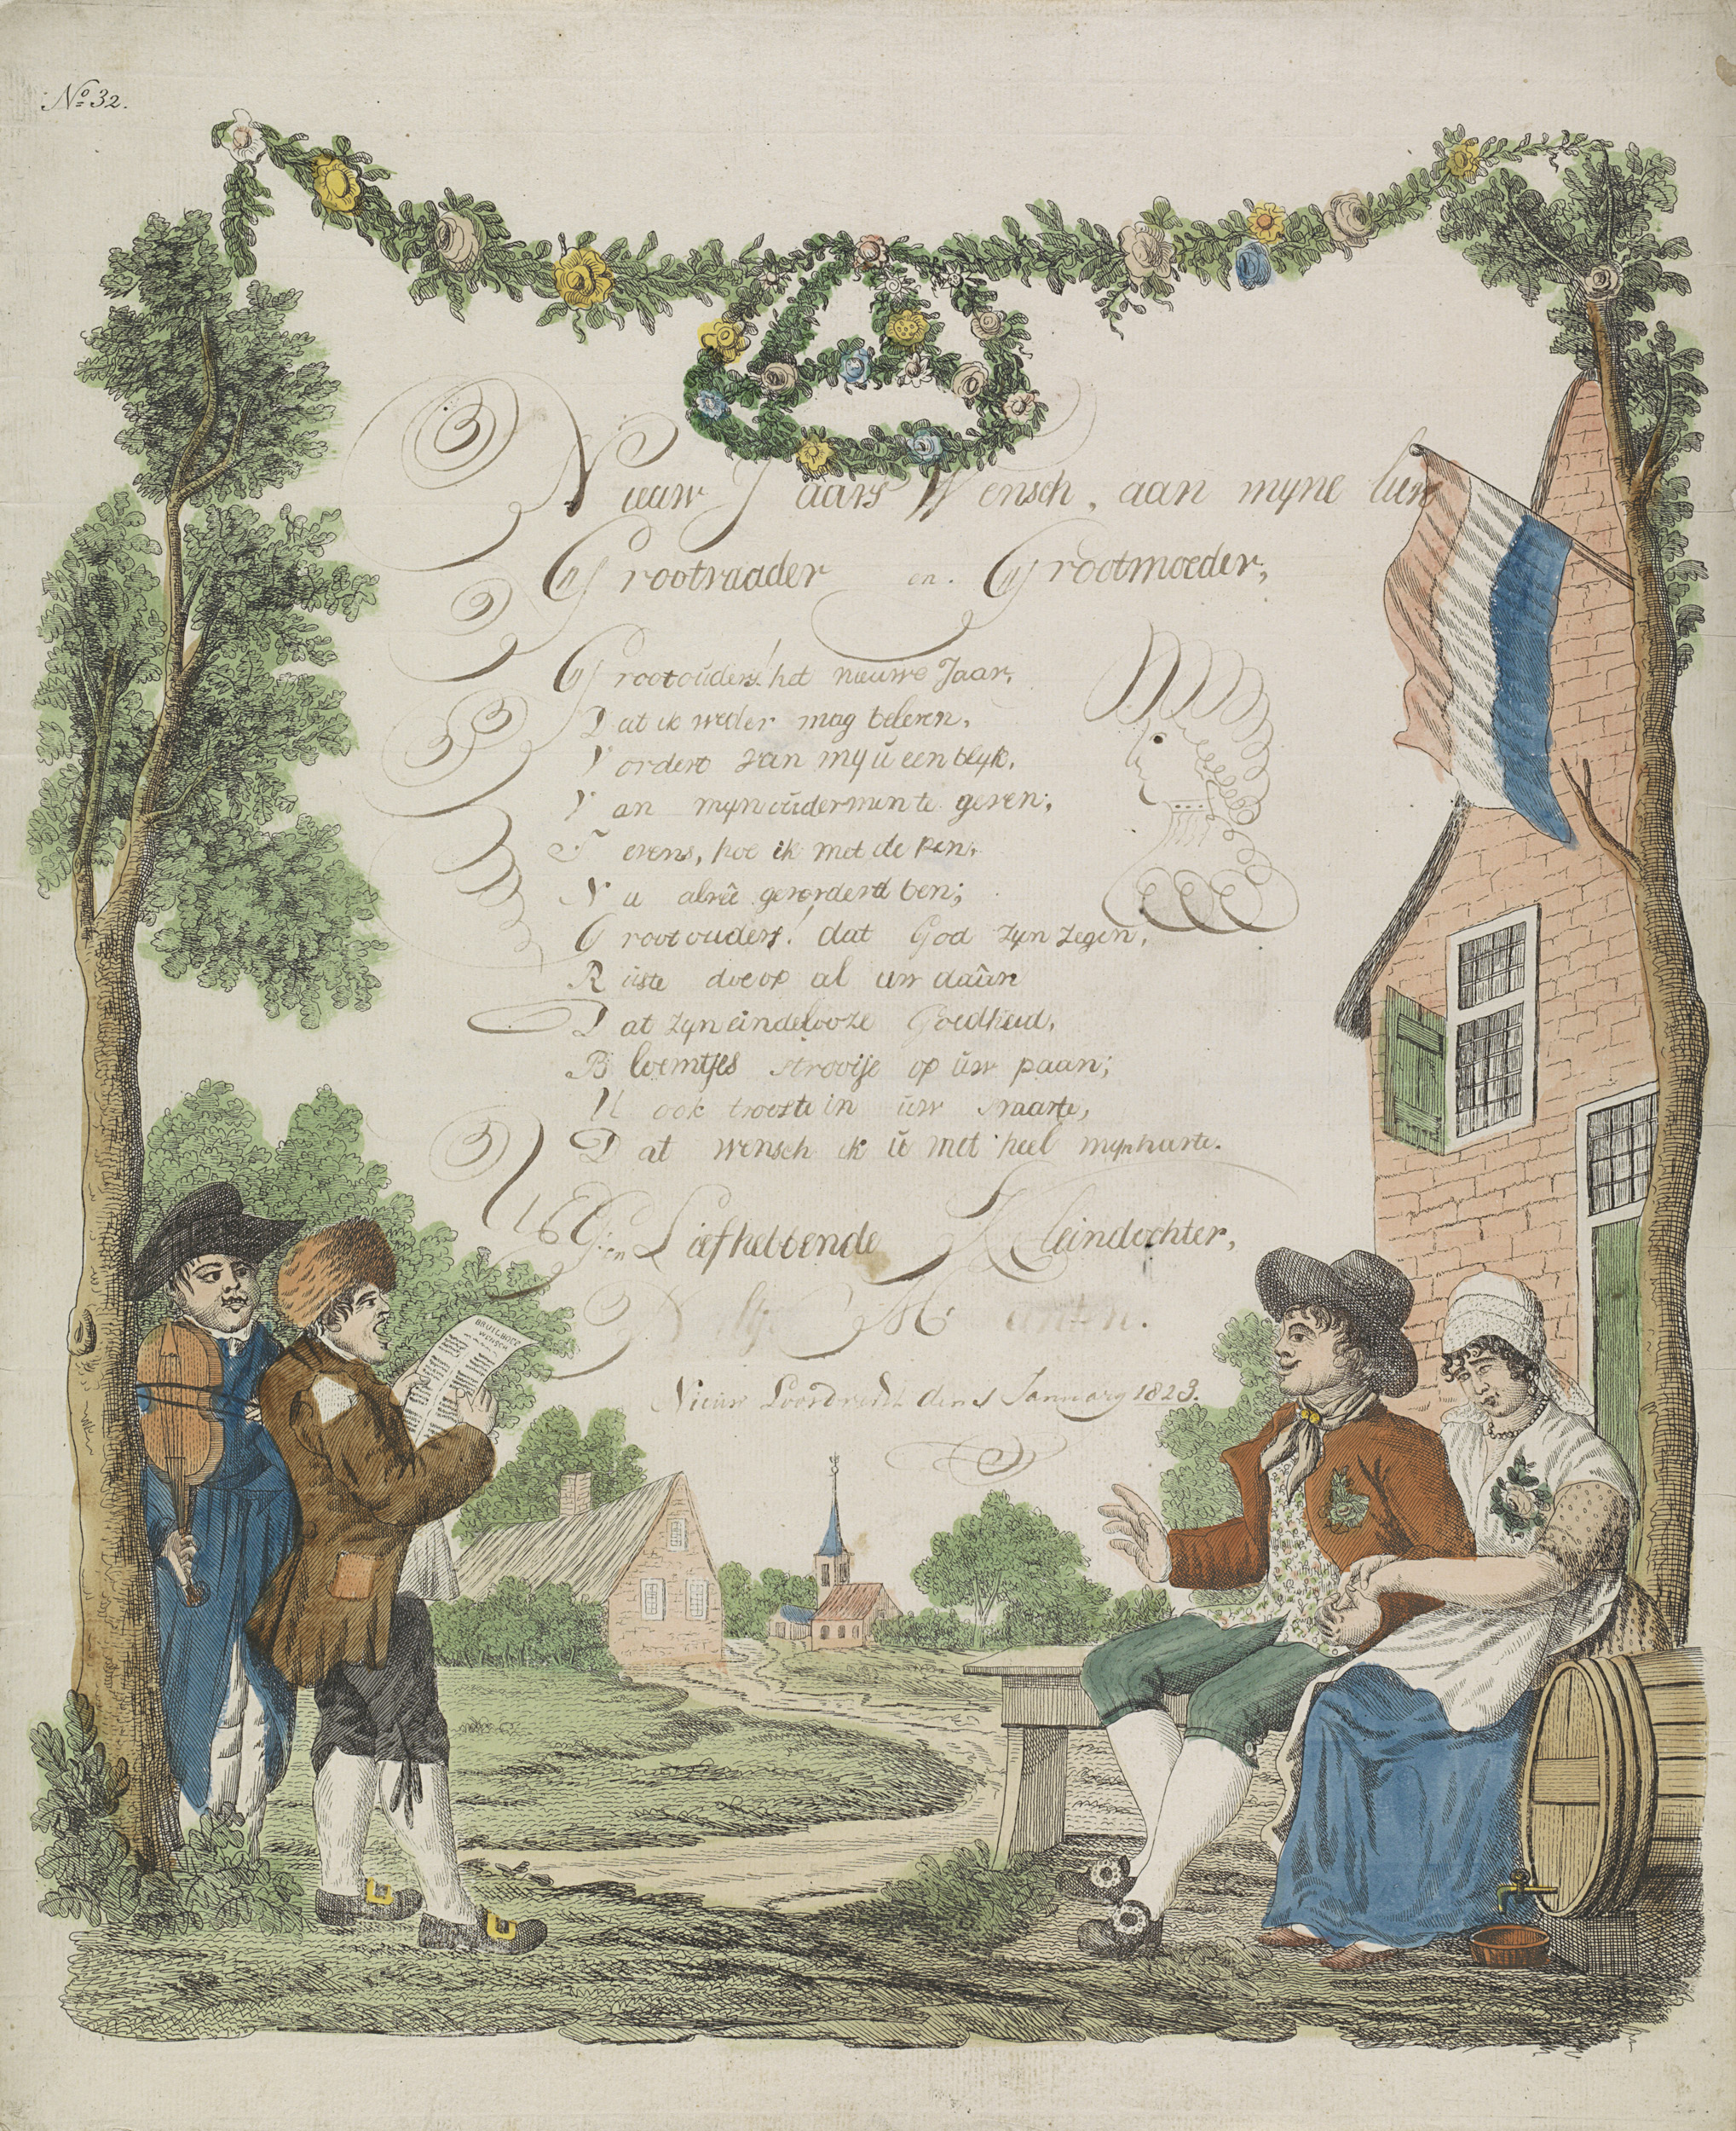 No 32.
Nieuw Jaars Wensch, aan myne lieve
Grootvaader en Grootmoeder,
Grootouders! het nieuwe Jaar,
Dat ik weder mag beleven,
Vordert van my ŭ een blyk,
Van myn oŭdermin te geven;
Tevens, hoe ik met de pen,
Nu alreê gevorderd ben;
Grootouders! dat God zyn zegen,
Rŭste doe op al uw daân
Dat zyn eindelooze Goedheid,
Bloemtjes strooije op ŭw paan;
U ook trooste in ŭw smarte,
Dat wensch ik ŭ met heel myn harte.
Liefhebbende Kleindochter,
BRUILHOFS
WENSCH
Nieuw Loosdrecht den 1 January 1823.